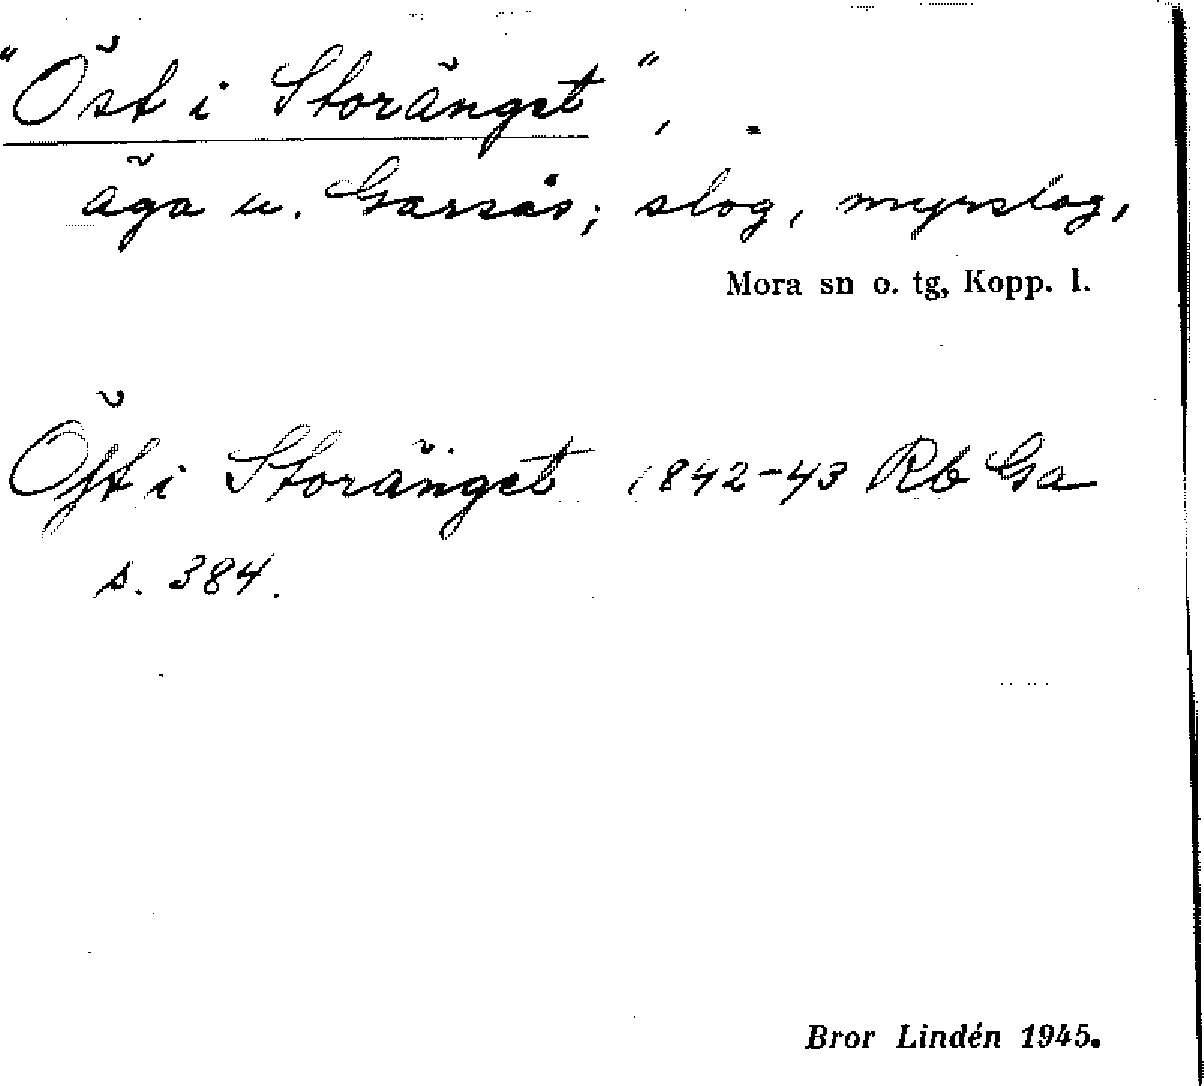 "Öst i Storänget",
äga u. Garsås; slog, myrslog,
Mora sn o. tg, Kopp. l.
Öſt i Storänget 1842-43 Rb Ga
s. 384.
Bror Lindén 1945.